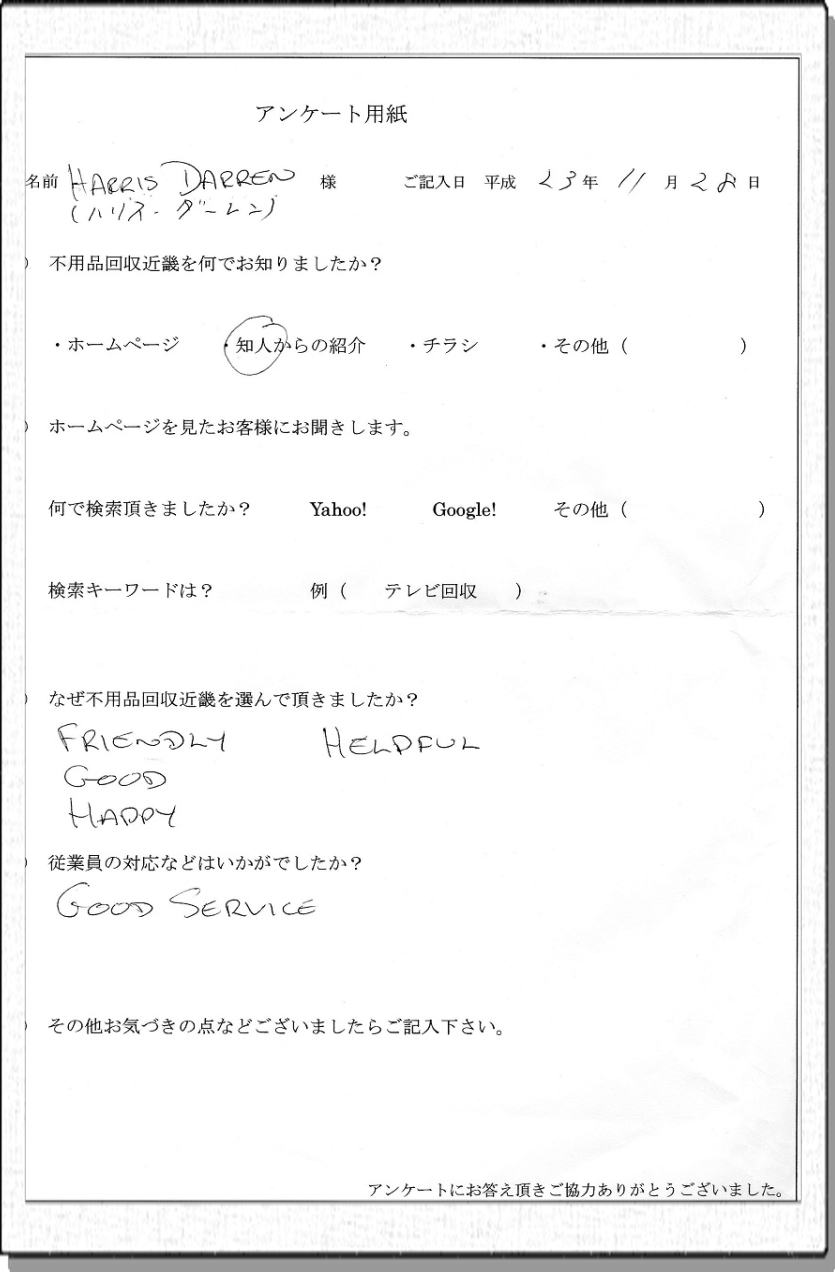 アンケート用紙
名前 HARRIS DARREN 様 ご記入日 平成 23年 11月28日
(ハリス・ダーレン)
) 不用品回収近畿を何でお知りましたか？
・ホームページ ・知人からの紹介 ・チラシ ・その他（ ）
) ホームページを見たお客様にお聞きします。
何で検索頂きましたか？ Yahoo! Google! その他（ ）
検索キーワードは？ 例（ テレビ回収 ）
) なぜ不用品回収近畿を選んで頂きましたか？
FRIENDLY HELPFUL
GOOD
HAPPY
) 従業員の対応などはいかがでしたか？
GOOD SERVICE
) その他お気づきの点などございましたらご記入下さい。
アンケートにお答え頂きご協力ありがとうございました。